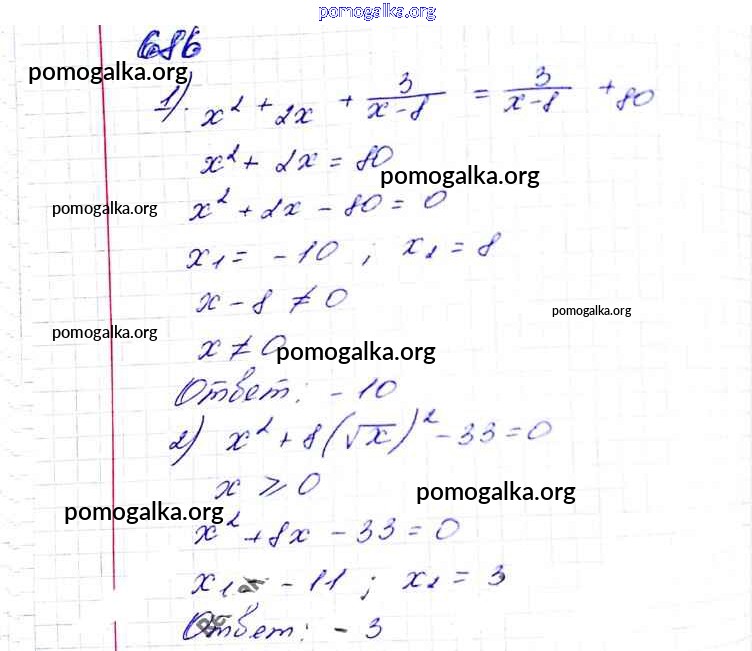 pomogalka.org
686
pomogalka.org
1). x² + 2x + 3/(x-8) = 3/(x-8) + 80
x² + 2x = 80
pomogalka.org
pomogalka.org
x² + 2x - 80 = 0
x₁ = -10 ; x₂ = 8
x - 8 ≠ 0
pomogalka.org
pomogalka.org
x ≠ 0
pomogalka.org
Ответ: -10
2) x² + 8(√x)² - 33 = 0
x ⩾ 0
pomogalka.org
pomogalka.org
x² + 8x - 33 = 0
x₁ = -11 ; x₂ = 3
Ответ: - 3